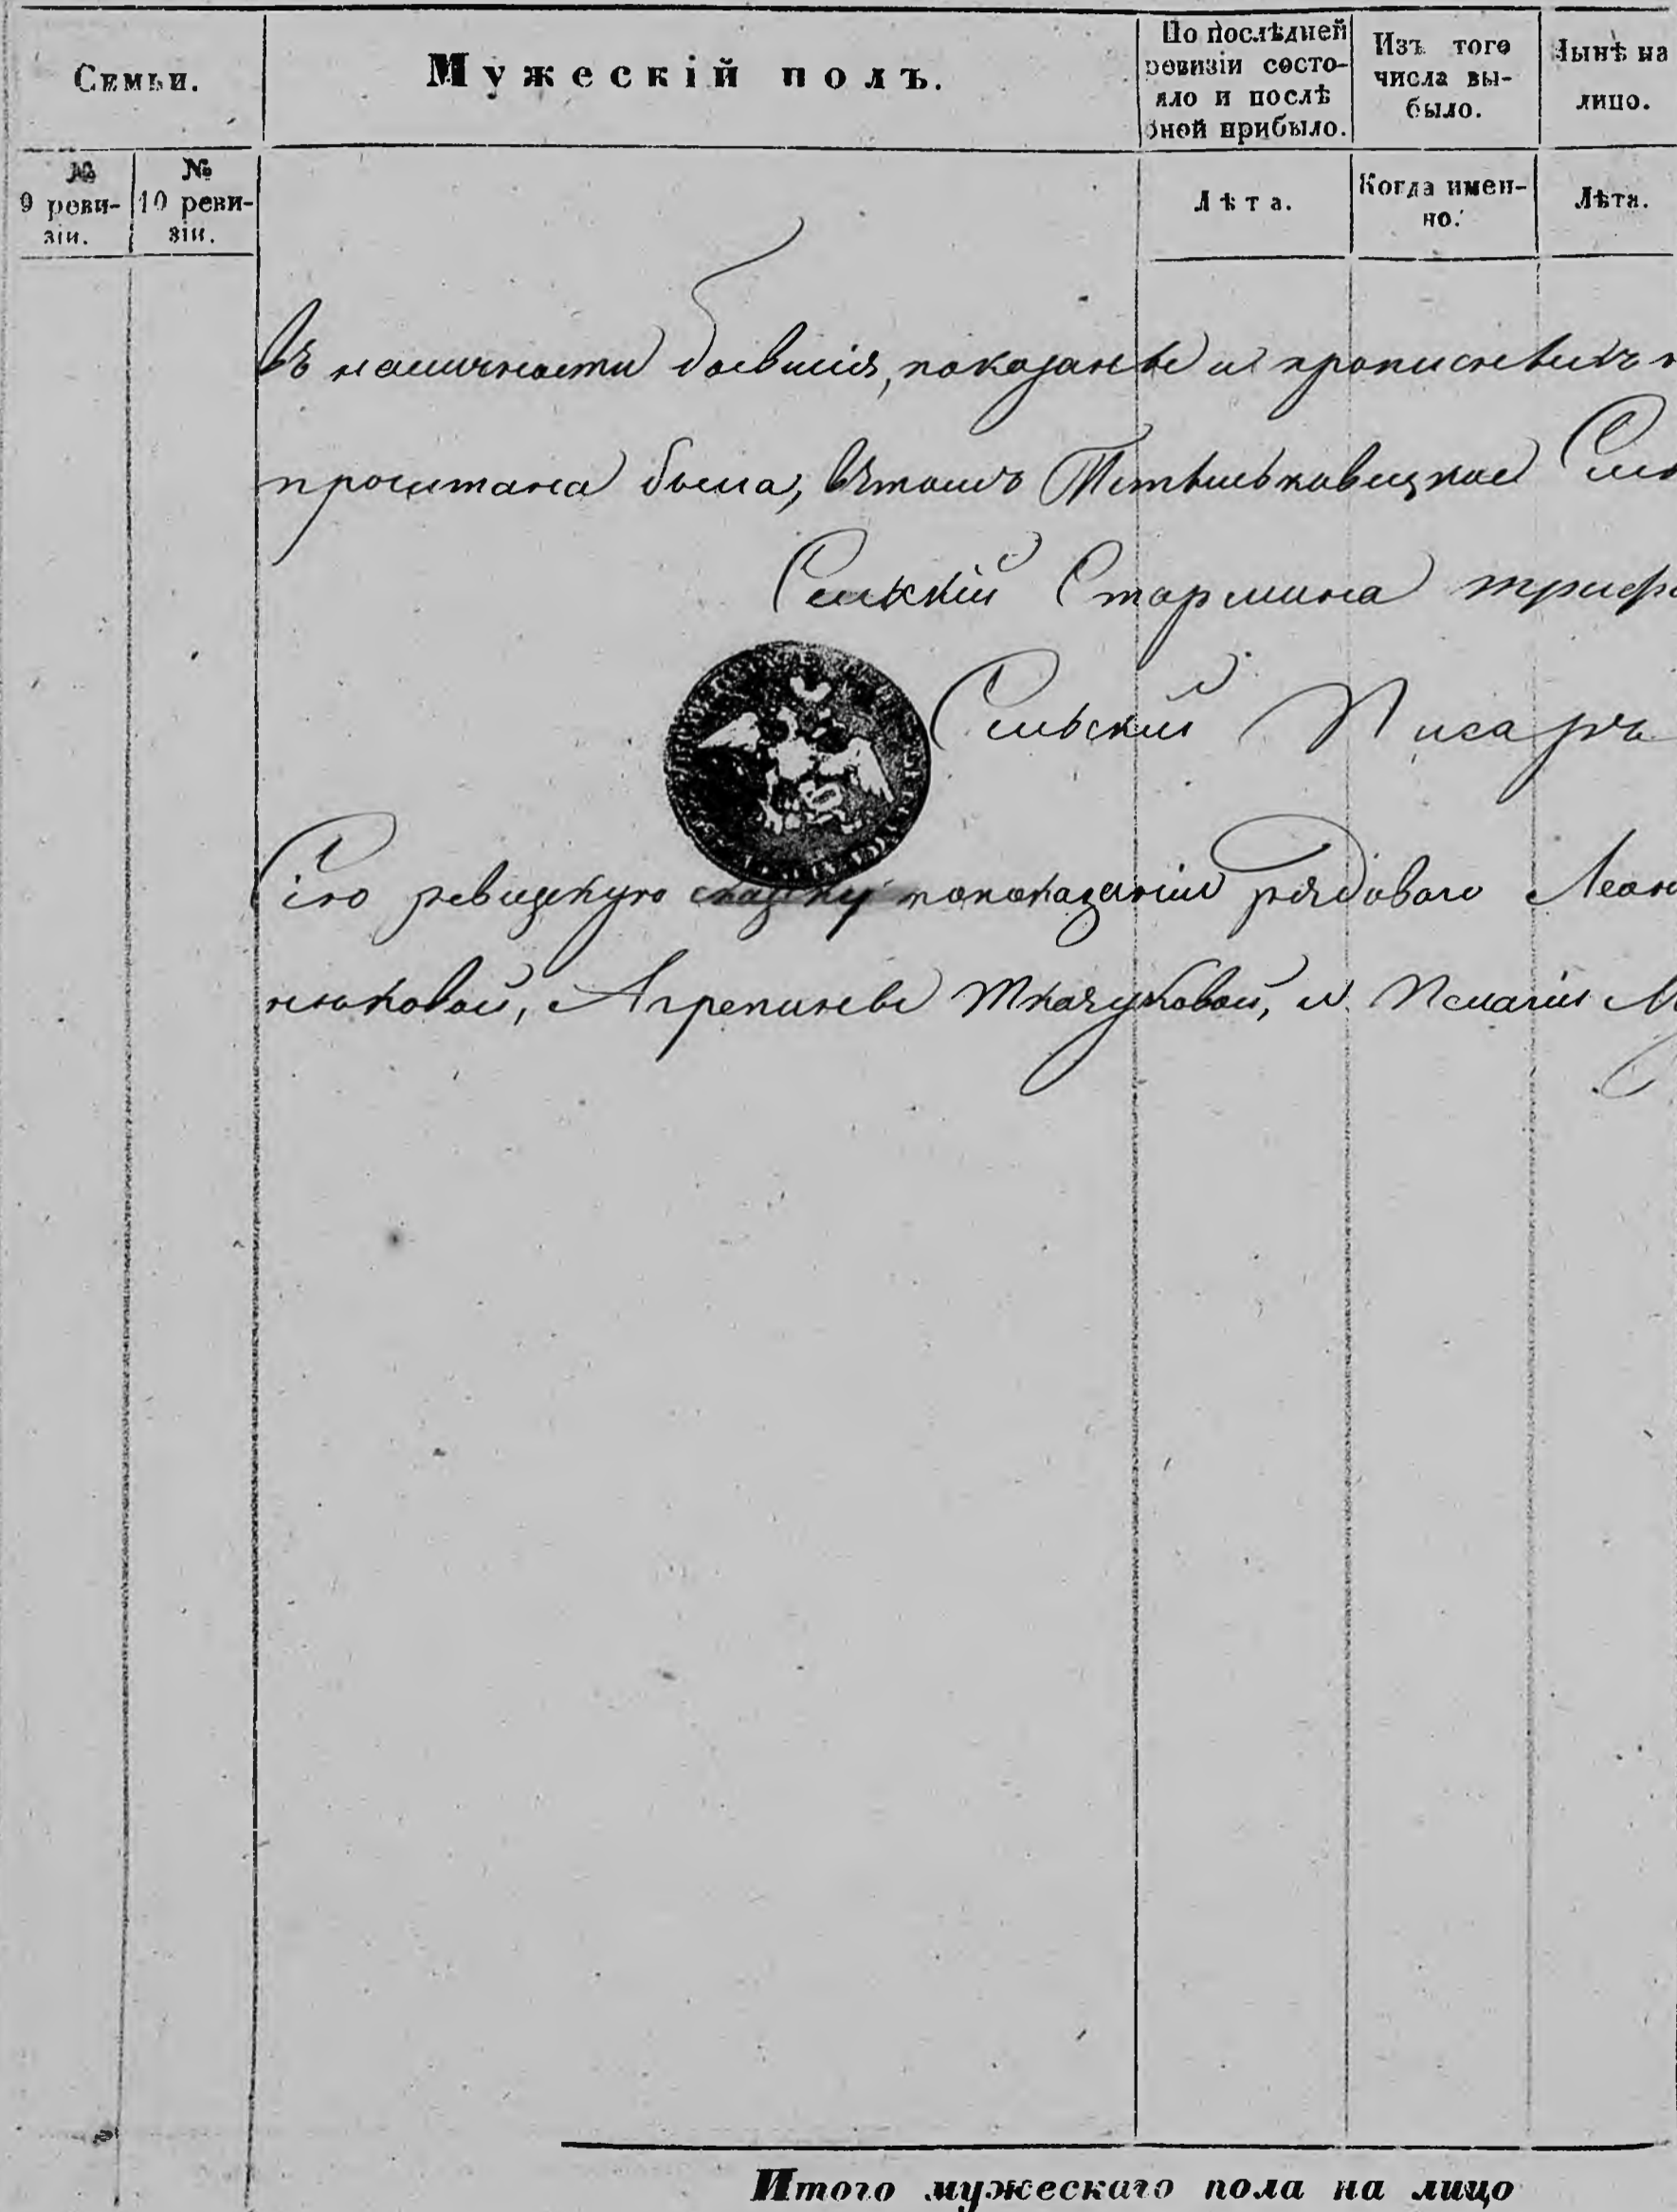 Семьи.
Мужескій полъ.
По послѣдней
ревизіи состо-
яло и послѣ
оной прибыло.
Изъ того
числа вы-
было.
Нынѣ на
лицо.
№
9 реви-
зіи.
№
10 реви-
зіи.
Лѣта.
Когда имен-
но.
Лѣта.
въ наличности бывшія, показаны и прописныхъ н
прочитана была, вътомъ
Сельскій Старшина Триф
Сельскій Писарь
Сію ревизскую сказку попоказанію рядоваго Леон
нюковой, Агрепины Ткачуковой, и
Итого мужескаго пола на лицо